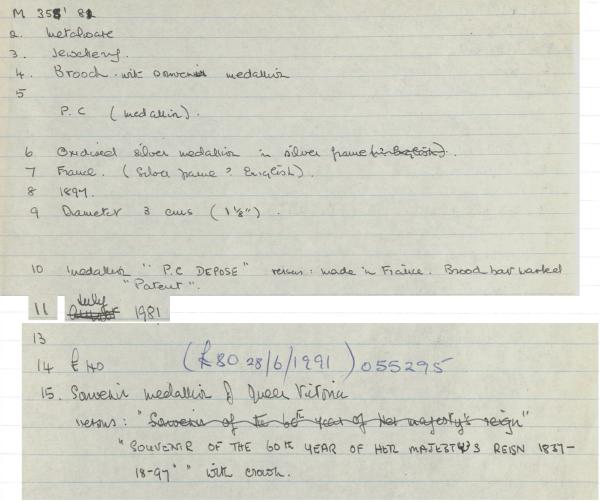 M 358' 82
2. Metalware
3. Jewellery.
4. Brooch with souvenir medallion
5
P.C (medallion).
6 Oxidised silver medallion in silver frame (in English).
7 France. (Silver frame ? English).
8 1897.
9 Diameter 3 cms (1 1/8").
10 Medallion "P.C DEPOSE" versus: made in France. Brooch bar marked
"Patent".
11 July 1981
13
14 £140 (£80 28/6/1991) 055295
15. Souvenir medallion of Queen Victoria
versus: "Souvenir of the 60th year of Her majesty's reign"
"SOUVENIR OF THE 60TH YEAR OF HER MAJESTY'S REIGN 1837-
18-97" with crown.